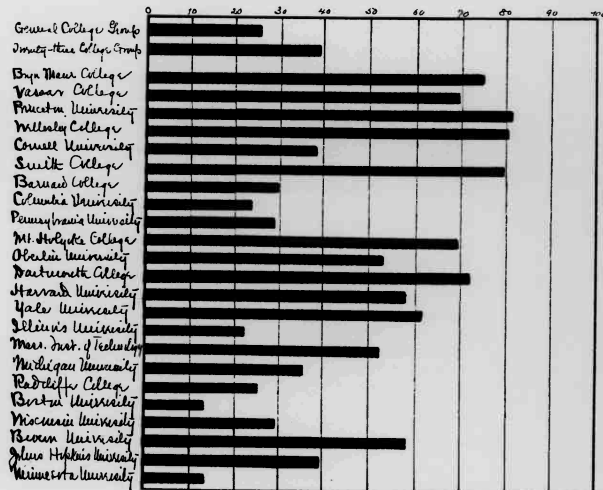 0 10 20 30 40 50 60 70 80 90 100
General College Group
Twenty-three College Group
Bryn Mawr College
Vassar College
Princeton University
Wellesley College
Cornell University
Smith College
Barnard College
Columbia University
Pennsylvania University
Mt. Holyoke College
Oberlin University
Dartmouth College
Harvard University
Yale University
Illinois University
Mass. Inst. of Technology
Michigan University
Radcliffe College
Boston University
Wisconsin University
Brown University
Johns Hopkins University
Minnesota University